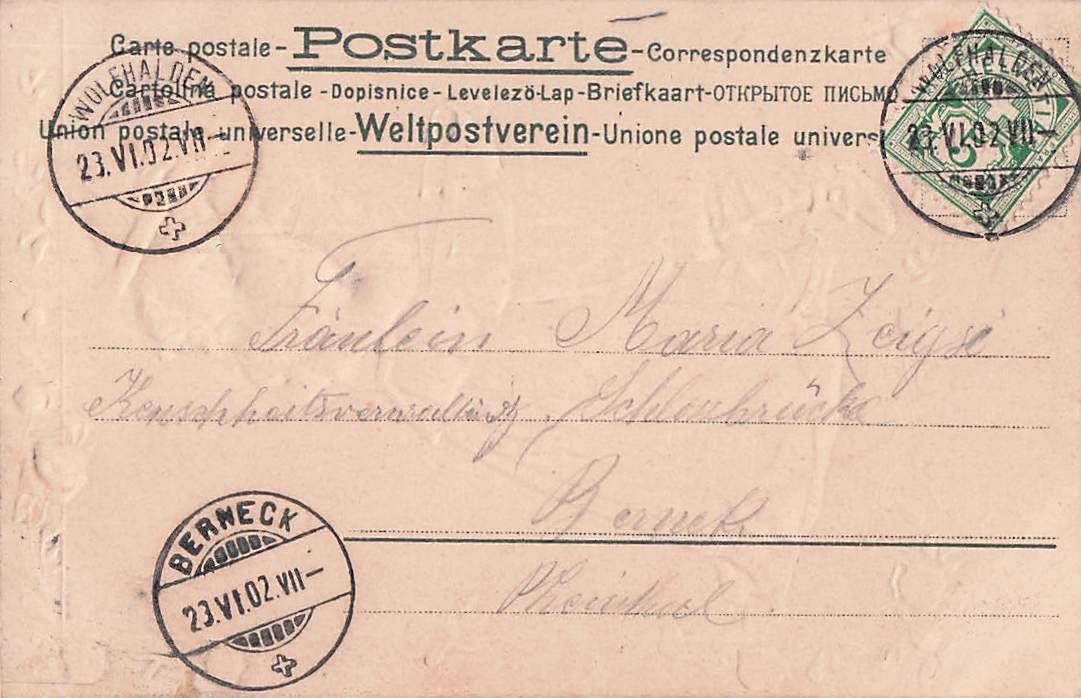 Carte postale - Postkarte - Correspondenzkarte
Cartolina postale - Dopisnice - Levelezö-Lap - Briefkaart - ОТКРЫТОЕ ПИСЬМО
Union postale universelle - Weltpostverein - Unione postale univers
WOLFHALDEN
23.VI.02.VII-
WOLFHALDEN
23.VI.02.VII-
5
Fräulein Maria
Berneck
Rheinthal
BERNECK
23.VI.02.VII-